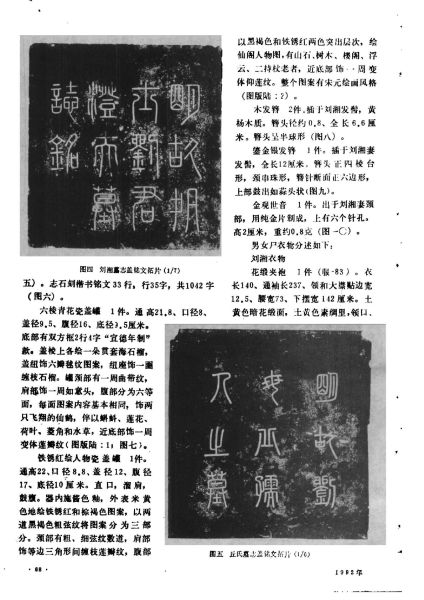 明故
士劉君
墓
誌銘
图四 刘湘墓志盖铭文拓片（1/7）
五）。志石刻楷书铭文33行，行35字，共1042字
（图六）。
六棱青花瓷盖罐 1件。通高21.8、口径8、
盖径9.5、腹径16、底径9.5厘米。
底部有双方框2行4字“宣德年制”
款。盖棱上各绘一朵贯套海石榴，
盖纽饰六瓣毬纹图案，纽座饰一圈
缠枝石榴。罐颈部有一周曲带纹，
肩部饰一周如意头，腹部分为六等
面，每面图案内容基本相同，饰两
只飞翔的仙鹤，伴以蝌蚪、莲花、
荷叶、菱角和水草，近底部饰一周
变体莲瓣纹（图版陆：1；图七）。
铁锈红绘人物瓷盖罐 1件。
通高22、口径8.8、盖径12、腹径
17、底径10厘米。直口，溜肩，
鼓腹。器内施酱色釉，外表米黄
色地给铁锈红和棕褐色图案，以两
道黑褐色粗弦纹将图案分为三部
分。颈部有粗、细弦纹数道，肩部
饰等边三角形间缠枝莲瓣纹，腹部
以黑褐色和铁锈红两色突出层次，绘
仙阁人物图，有山石、树木、楼阁、浮
云、二持杖老者，近底部饰一周变
体仰莲纹。整个图案有宋元绘画风格
（图版陆：2）。
木发簪 2件。插于刘湘发髻，黄
杨木质，簪头径约0.8、全长6.6厘
米。簪头呈半球形（图八）。
鎏金银发簪 1件。插于刘湘妻
发髻，全长12厘米。簪头正四棱台
形，颈串珠形，簪针断面正六边形，
上部鼓出如蒜头状(图九)。
金观世音 1件。出于刘湘妻颈
部，用纯金片制成，上有六个针孔。
高2厘米，重约0.8克（图一〇）。
男女尸衣物分述如下：
刘湘衣物
花缎夹袍 1件（馭-83）。衣
长140、通袖长237、领和大襟贴边宽
12.5、腰宽73、下摆宽142厘米。土
黄色暗花缎面，土黄色素绸里，领口、
明故劉
母丘孺
人之墓
图五 丘氏墓志盖铭文拓片（1/6）
·68·
1992年